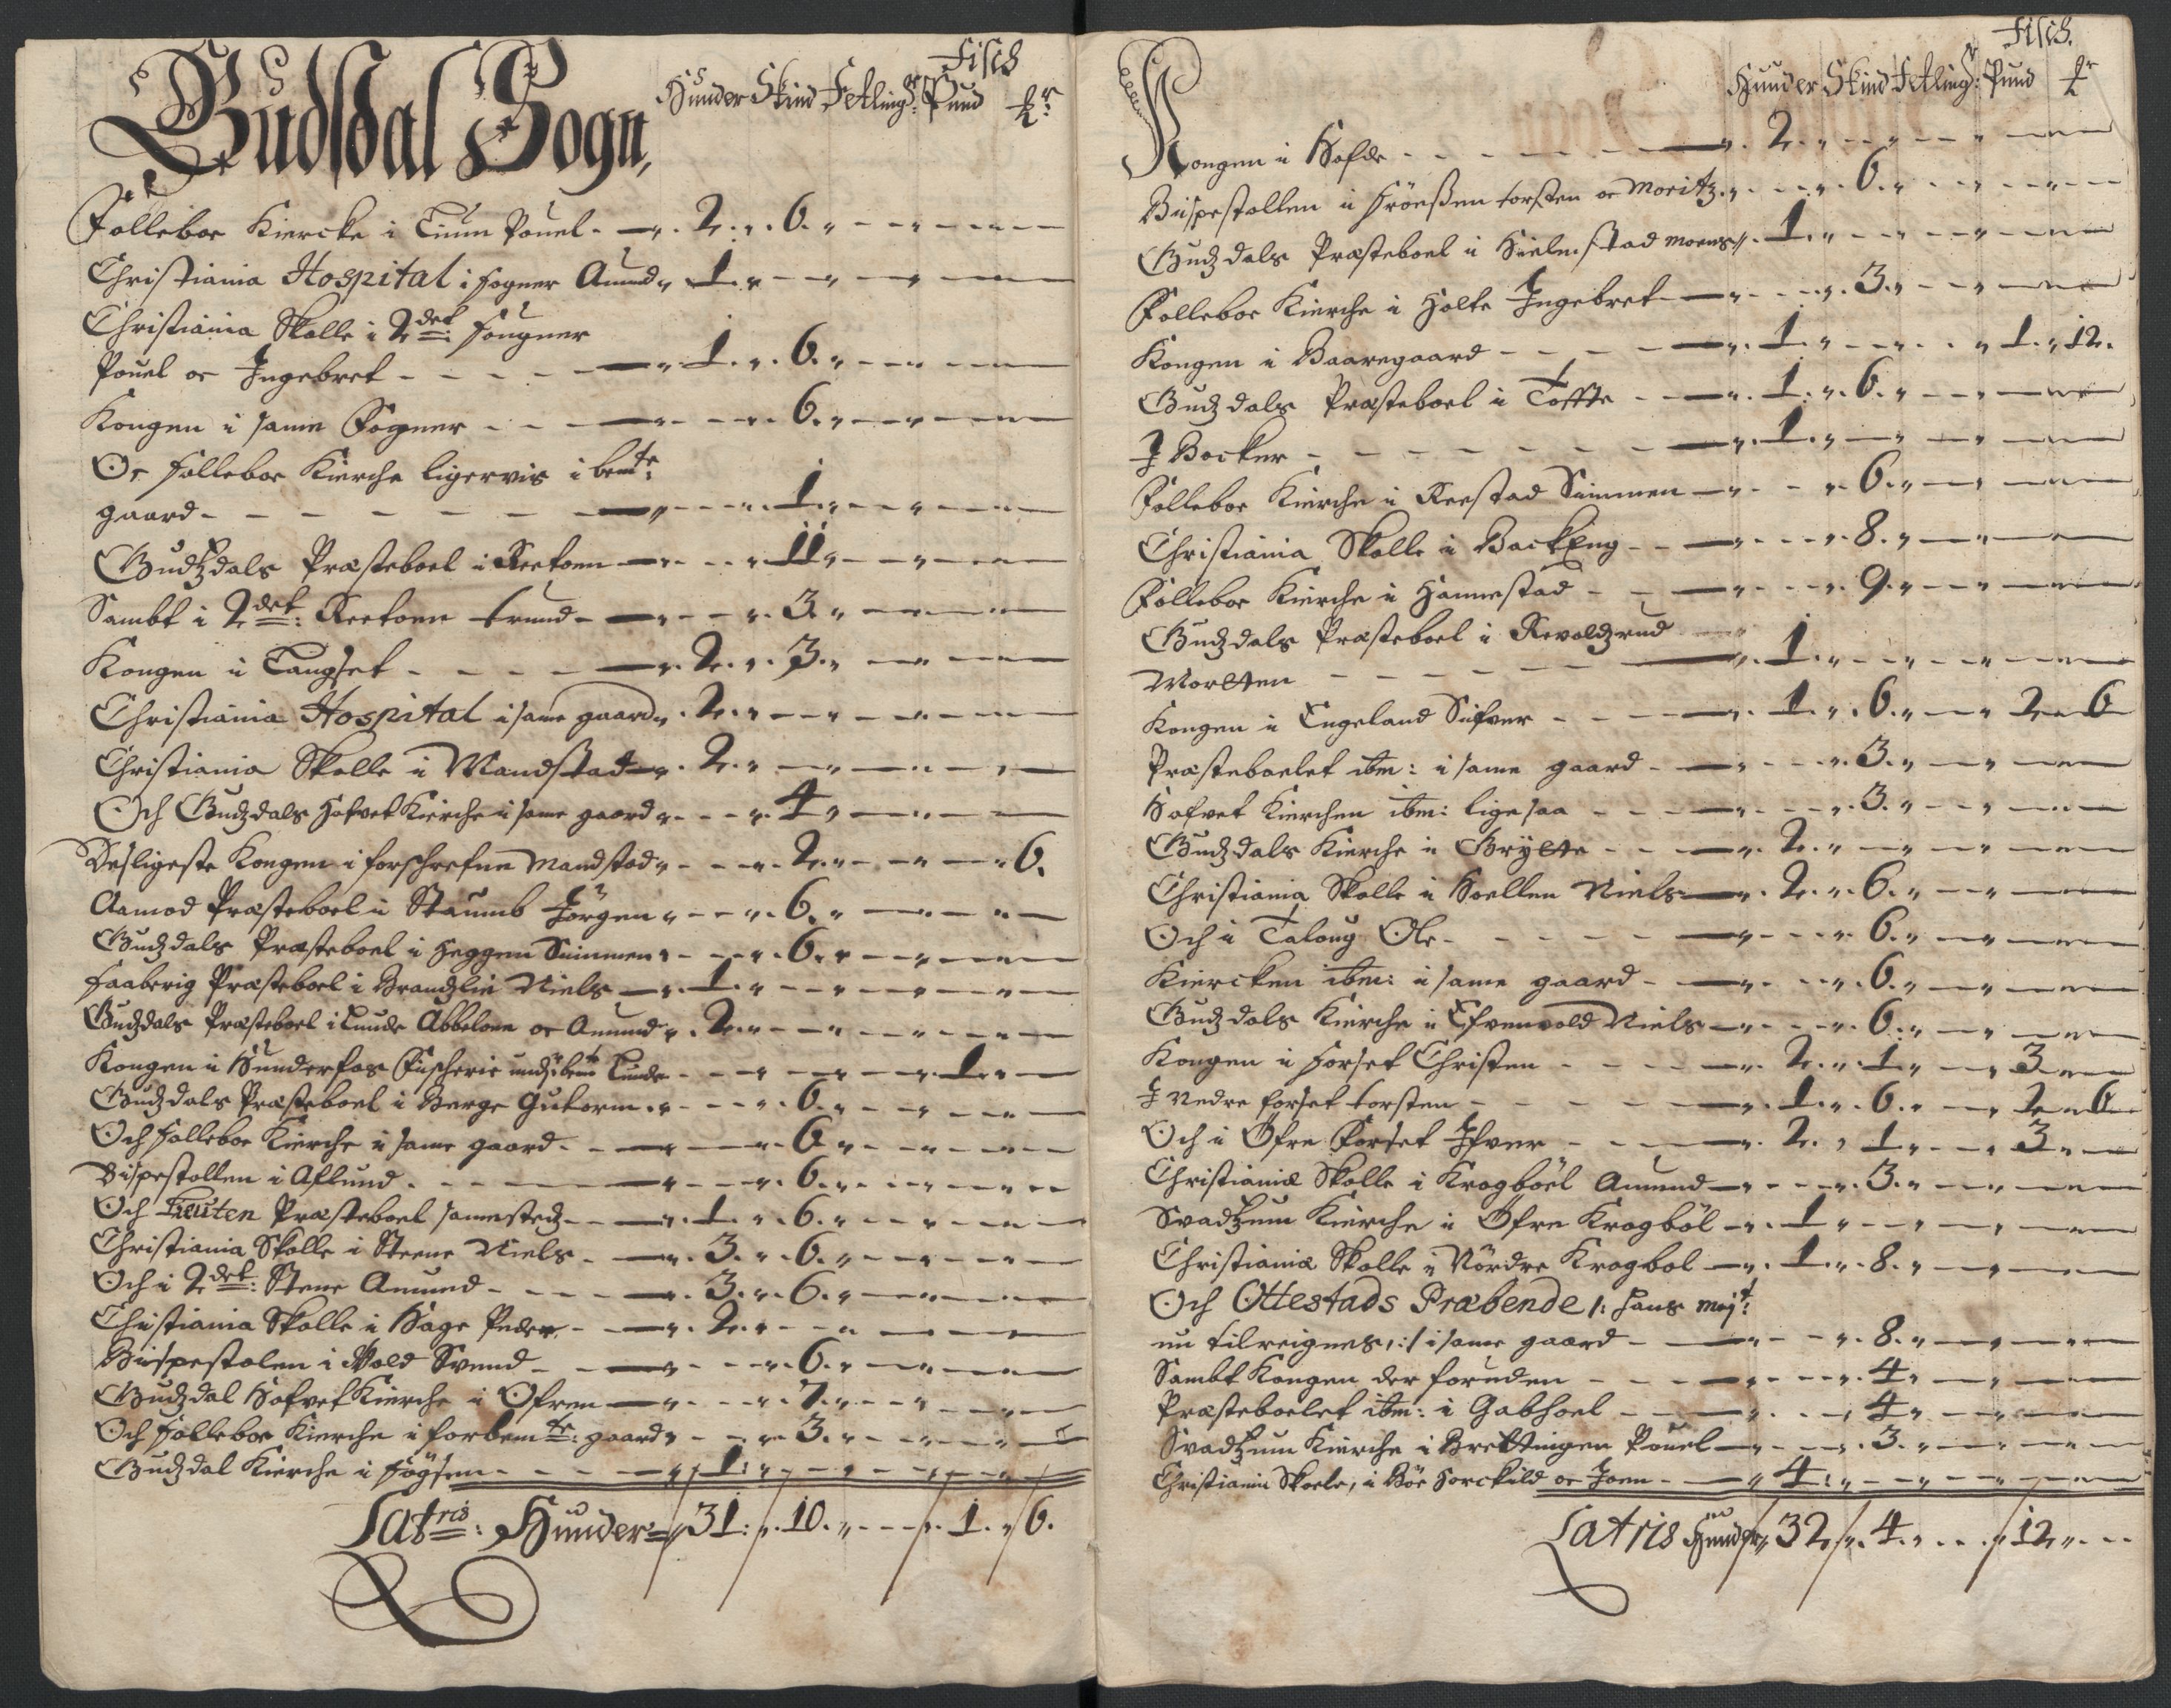 Fisch
Gudsdal Sogn, Hunder Skind Fetling: Pund
Folleboe Kiercke i Tium Pouel - 2. 6.
Christiania Hospital i fogner Amund 1.
Christiania Skolle i 2det: fougner
Pouel oc Ingebret - - - - 1. 6.
Kongen i same Fogner - - - 6.
Oc folleboe Kierche ligervis i bemte:
gaard - - - - - - 1.
Gudzdals Præsteboel i Reetoen 11
Sambt i 2det: Reetoen trund - 3.
Kongen i Taugset - - - - 2. 3.
Christiania Hospital i same gaard 2.
Christiania Skolle i Mandstad 2.
Och Gudzdals Hofvet Kierche i same gaard 4
Desligeste Kongen i forschrefne Mandstad 2. 6.
Aamod Præsteboel i Staumb Jörgen 6.
Gudzdals Præsteboel i Heggen Simmen 6.
Faaberig Præsteboel i Brandlie Niels 1.
Gudzdals Præsteboel i Lunde Abbelone oc Amund 2.
Kongen i Hunderfos Fischerie Lunde 1.
Gudzdals Præsteboel i Berge Gutorm 6.
Och folleboe Kierche i same gaard - 6.
Bispestollen i Aflund - 6.
Och Præsteboel samestedz - 1. 6.
Christiania Skolle i Steene Niels - 3. 6.
Och i 2det: Stene Amund - 3. 6.
Christiania Skolle i Hage Peder - 2.
Bispestolen i Vold Svend - 6.
Gudzdal Hofvet Kierche i Ofren 7.
Och folleboe Kierche i forbemte: gaard 3.
Gudzdal Kierche i 1.
Latris: Hunder 31. 10. 1. 6.
Fisch.
Hunder Skind Fetling: Pund
Kongen i Hofde - - - - 2.
Bispestollen i torsten oc Moritz 6.
Gudzdals Præsteboel i Hielmstad Moens 1.
Folleboe Kierche i Holte Ingebret 3.
Kongen i Baaregaard - - - 1. 1. 12.
Gudzdals Præsteboel i Toffte - 1. 6.
I Bocker - - - - - 1.
Folleboe Kierche i Reestad Simmen 6.
Christiania Skolle i BackEng - 8.
Folleboe Kierche i Hannestad - 9.
Gudzdals Præsteboel i Revoldzrud
Mortten - - - - 1.
Kongen i Engeland Sifver - - 1. 6. 2 6
Præsteboelet ibm: i same gaard - 3.
Hofvet Kierchen ibm: ligesaa - 3.
Gudzdals Kierche i Brytte - - 2.
Christiania Skolle i Hoellen Niels 2. 6.
Och i Taloug Ole - - - - 6.
Kiercken ibm: i same gaard - 6.
Gudzdals Kierche i Efvenvold Niels 6.
Kongen i forset Christen - - 2. 1. 3
I Nedre forset torsten - - 1. 6. 2 6
Och i Öfre Forset Ifver - - 2. 1. 3
Christianiæ Skolle i Krogböel Amund 3.
Svadtzum Kierche i Öfre Krogböl 1
Christianiæ Skolle i Nördre Krogbol 1. 8.
Och Ottestads Præbende /: Hans Majt:
nu tilreignes, :/ i same gaard - 8.
Sambt Kongen der foruden - - 4.
Præsteboelet ibm: i Gabhoel - 4
Svadtzum Kierche i Brettingen Pouel 3.
Christiania Skoele, i Böe Torckild oc Joen - 4
Latris Hunder 32 4. 12